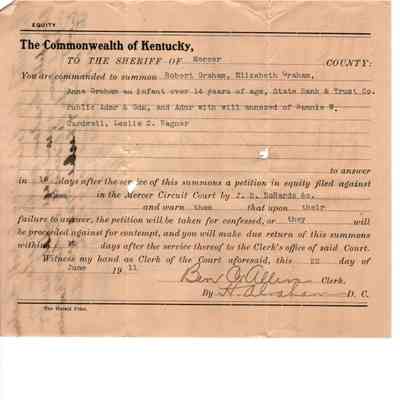 EQUITY
The Commonwealth of Kentucky,
TO THE SHERIFF OF Mercer COUNTY:
You are commanded to summon Robert Graham, Elizabeth Graham,
Anna Graham an infant over 14 years of age, State Bank & Trust Co.
Public Admr & Gdn, and Admr with will annexed of Nannie W.
Cardwell, Leslie C. Wagner
to answer
in days after the service of this summons a petition in equity filed against
in the Mercer Circuit Court by &c.
and warn them that upon their
failure to answer, the petition will be taken for confessed, or they will
be proceeded against for contempt, and you will make due return of this summons
within days after the service thereof to the Clerk's office of said Court.
Witness my hand as Clerk of the Court aforesaid, this 22 day of
June 1911
Ben C. Allin Clerk.
By D. C.
The Herald Print.